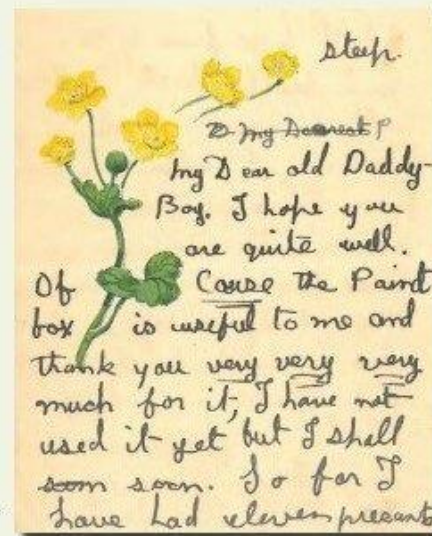 steep.
To my Dearest P
My Dear old Daddy-
Boy. I hope you
are quite well.
Of Cause the Paint
box is useful to me and
thank you very very very
much for it, I have not
used it yet but I shall
soon soon. So far I
have had eleven presents